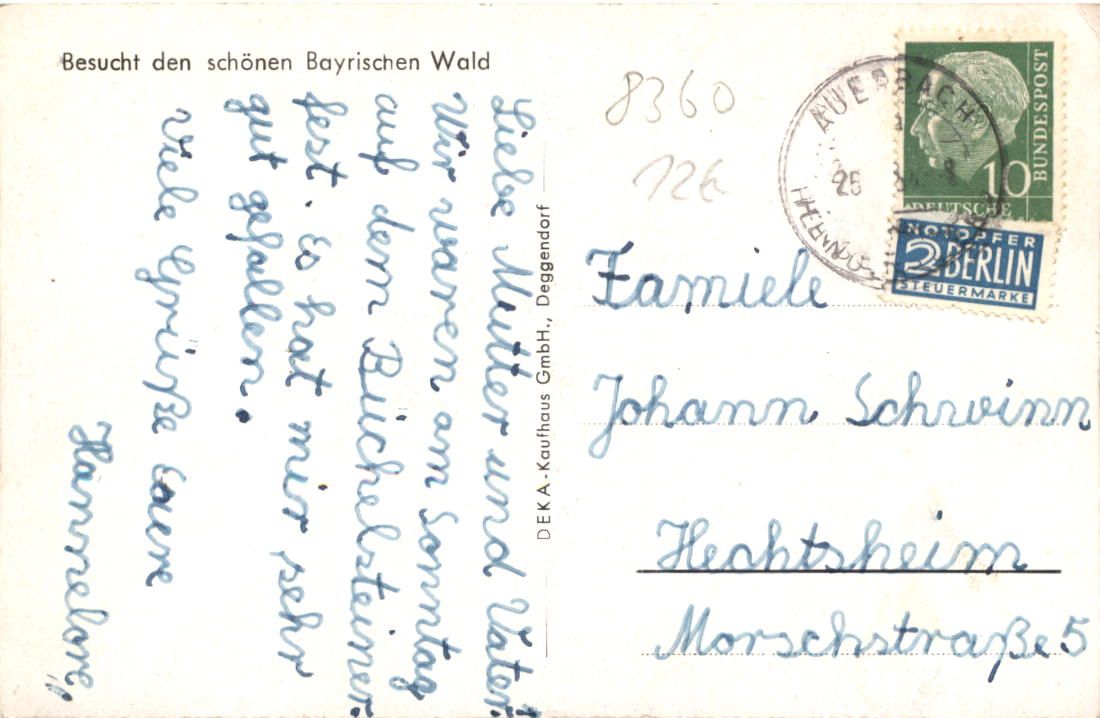 Besucht den schönen Bayrischen Wald
Liebe Mutter und Vater.
Wir waren am Sonntag
auf dem Büchelsteiner
fest. Es hat mir sehr
gut gefallen.
Viele Grüße eure
Hannelore,,
DEKA-Kaufhaus GmbH., Deggendorf
8360
126
AUERBACH
26
10
DEUTSCHE
BUNDESPOST
NOTOPFER
2 BERLIN
STEUERMARKE
Famiele
Johann Schwinn
Hechtsheim
Morschstraße 5